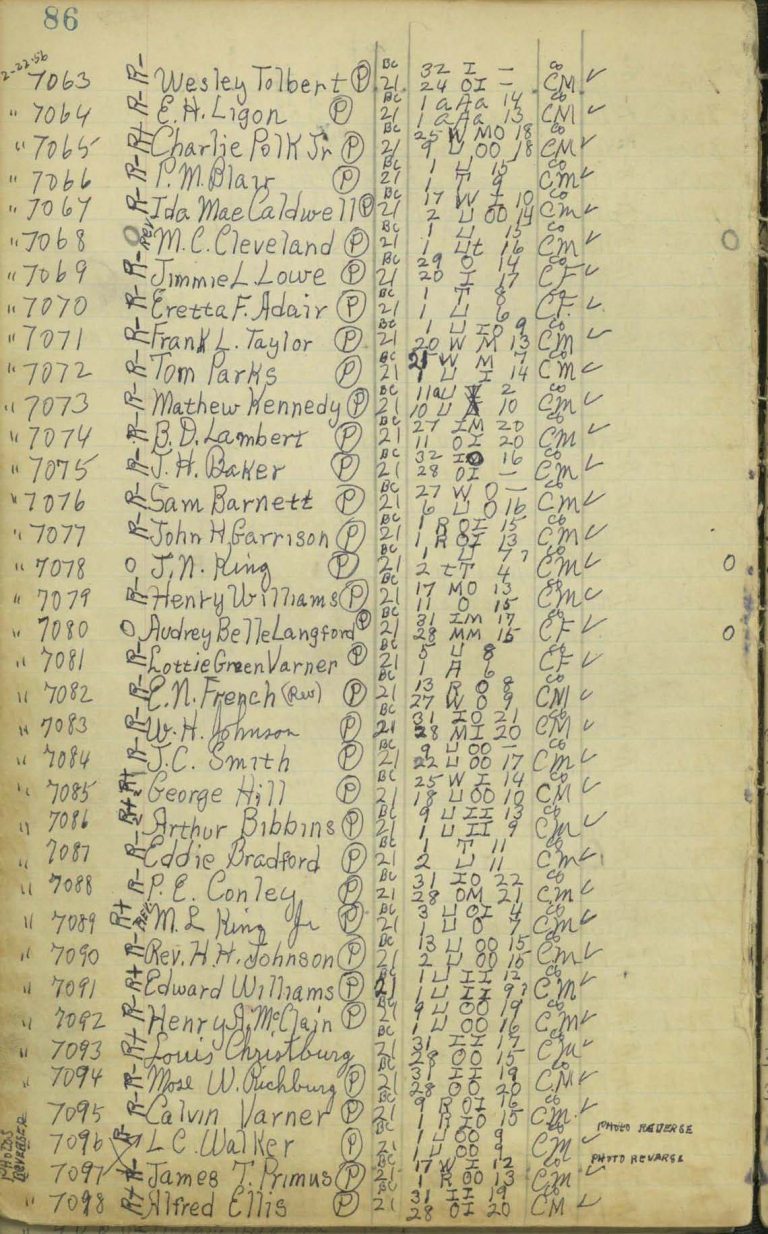 86
2-22-56 7063 R- Wesley Tolbert P BC 21 32 I - 24 OI - CO CM ✓
" 7064 R- E.H. Ligon P BC 21 1 aAa 14 1 aAa 13 CO CM ✓
" 7065 R+ Charlie Polk Jr P BC 21 25 W MO 18 9 U OO 18 CO CM ✓
" 7066 R- P.M. Blair P BC 21 1 U 15 1 T 9 CO CM ✓
" 7067 R- Ida Mae Caldwell P BC 21 17 W I 10 2 U OO 14 CO CM ✓
" 7068 O Rev M.C. Cleveland P BC 21 1 U 15 1 Ut 16 CO CM ✓ O
" 7069 R- Jimmie L. Lowe P BC 21 29 O 14 20 I 17 CO CF ✓
" 7070 R- Eretta F. Adair P BC 21 1 T 8 1 U 6 CO CF. ✓
" 7071 R- Frank L. Taylor P BC 21 1 U IO 9 20 W M 13 CO CM ✓
" 7072 R- Tom Parks P BC 21 W M 7 1 U I 14 CO CM ✓
" 7073 R- Mathew Kennedy P BC 21 11 aU 2 10 U A 10 CO CM ✓
" 7074 R- B.D. Lambert P BC 21 27 IM 20 11 OI 20 CO CM ✓
" 7075 R- J.H. Baker P BC 21 32 IO 16 28 OI - CO CM ✓
" 7076 R- Sam Barnett P BC 21 27 W O - 6 U O 16 CO CM ✓
" 7077 R- John H. Garrison P BC 21 1 R OI 15 1 R OI 13 CO CM ✓
" 7078 O J.N. King P BC 21 1 U 7? 2 tT 4 CO CM ✓ O
" 7079 R- Henry Williams P BC 21 17 MO 13 11 O 15 CO CM ✓
" 7080 O Audrey Belle Langford P BC 21 31 IM 17 28 MM 15 CO CF ✓ O
" 7081 R- Lottie Green Varner P BC 21 5 U 8 1 A 6 CO CF ✓
" 7082 R- E.N. French (Rev) P BC 21 13 R O 8 27 W O 9 CO CM ✓
" 7083 R- W.H. Johnson P BC 21 31 IO 21 28 MI 20 CO CM ✓
" 7084 R- J.C. Smith P BC 21 9 U OO - 22 U OO 17 CO CM ✓
" 7085 R+ George Hill P BC 21 25 W I 14 18 U OO 10 CO CM ✓
" 7086 R+ Arthur Bibbins P BC 21 9 U II 13 1 U II 9 CO CM ✓
" 7087 R- Eddie Bradford P BC 21 1 T 11 2 U 11 CO CM ✓
" 7088 R- P.E. Conley P BC 21 31 IO 22 28 OM 21 CO CM ✓
" 7089 R+ Rev M.L King Jr P BC 21 3 U OI 4 1 U O 7 CO CM ✓
" 7090 R- Rev. H.H. Johnson P BC 21 13 U OO 15 2 U OO 15 CO CM ✓
" 7091 R+ Edward Williams P BC 21 1 U II 12 1 U II 9? CO CM ✓
" 7092 R- Henry A. McClain P BC 21 9 U OO 19 1 U OO 16 CO CM ✓
" 7093 R+ Louis Christburg BC 21 31 II 17 28 OO 15 CO CM ✓
" 7094 R- Mose W. Richburg P BC 21 31 II 19 28 OO 20 CO CM ✓
" 7095 R- Calvin Varner P BC 21 9 R OI 16 1 R IO 15 CO CM ✓
PHOTOS REVERSED
" 7096 R L C. Walker P BC 21 1 U OO 9 1 U OO 9 CO CM ✓ PHOTO REVERSE
" 7097 R+ James T. Primus P BC 21 17 W I 12 1 R OO 13 CO CM ✓ PHOTO REVARSE
" 7098 R+ Alfred Ellis P BC 21 31 II 19 28 OI 20 CO CM ✓